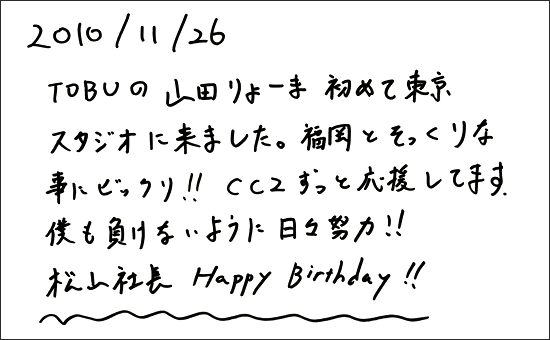 2010/11/26
TOBUの 山田りょーま 初めて東京
スタジオに来ました。福岡とそっくりな
事にビックリ!! CC2ずっと応援してます.
僕も負けないように日々努力!!
松山社長 Happy Birthday!!